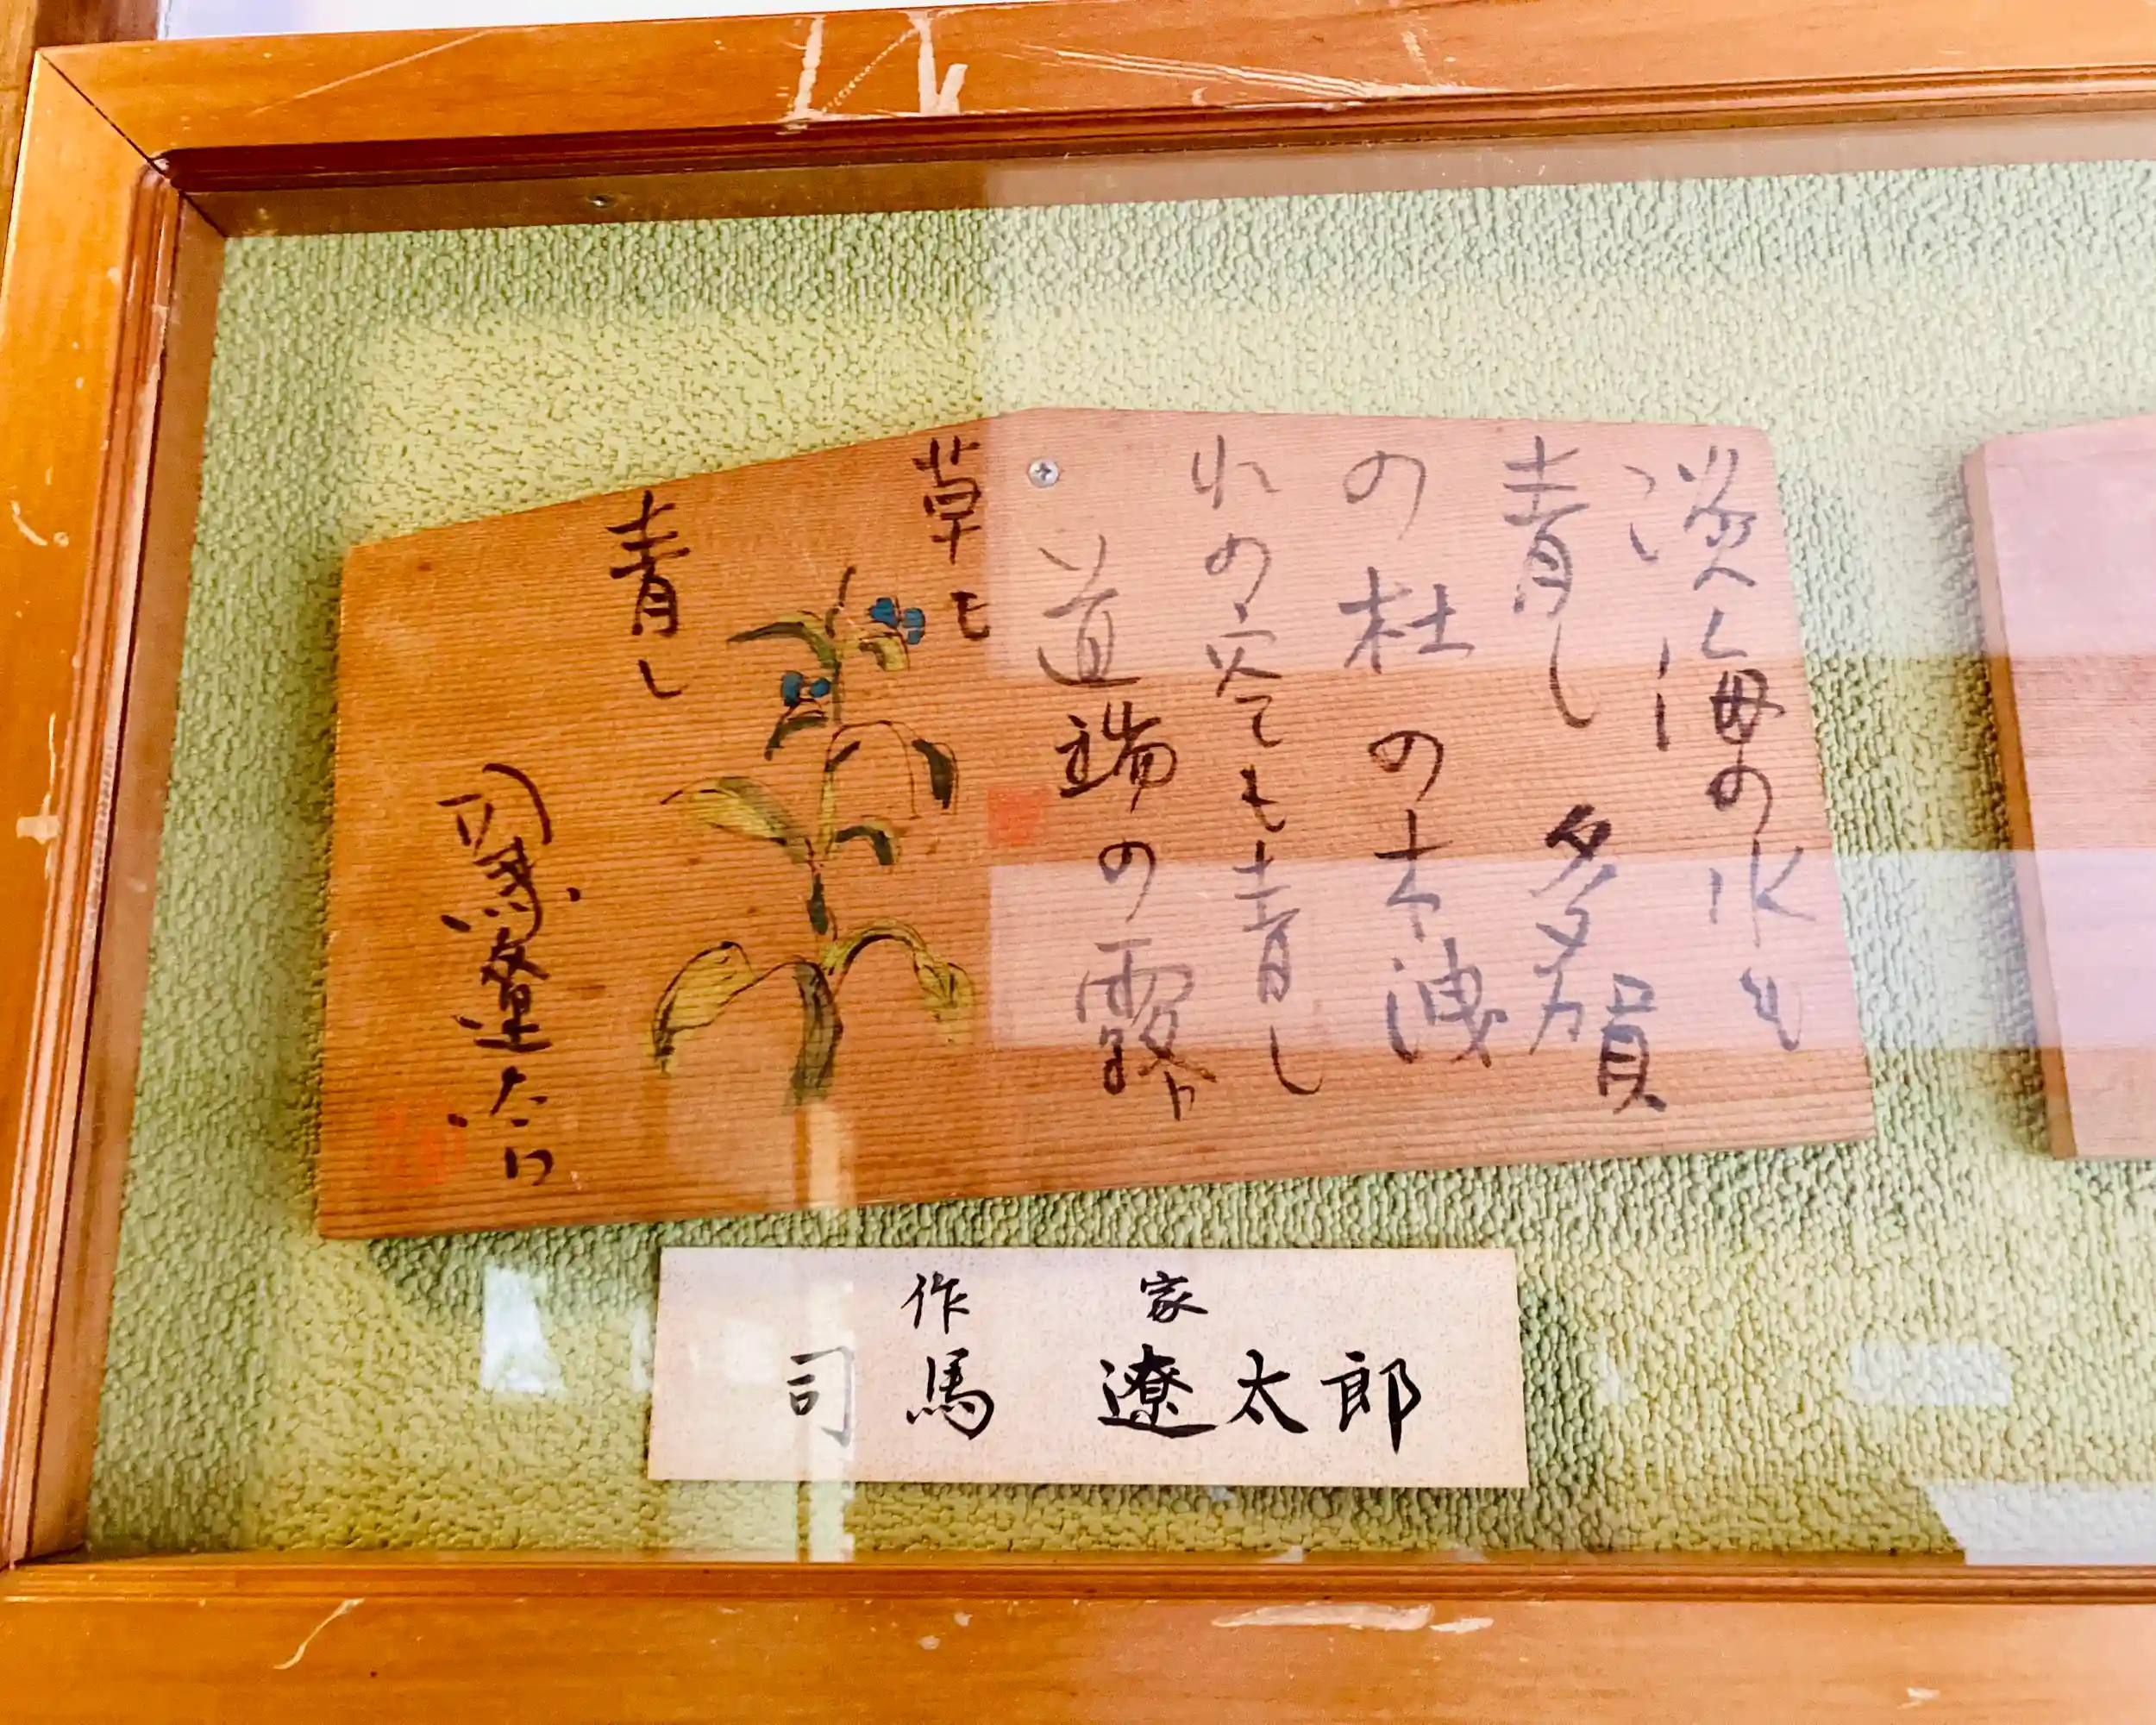 淡海の水も
青し 多賀
の杜の木洩
れの空も青し
道端の露
草も
青し
司馬遼太郎
作 家
司馬 遼太郎